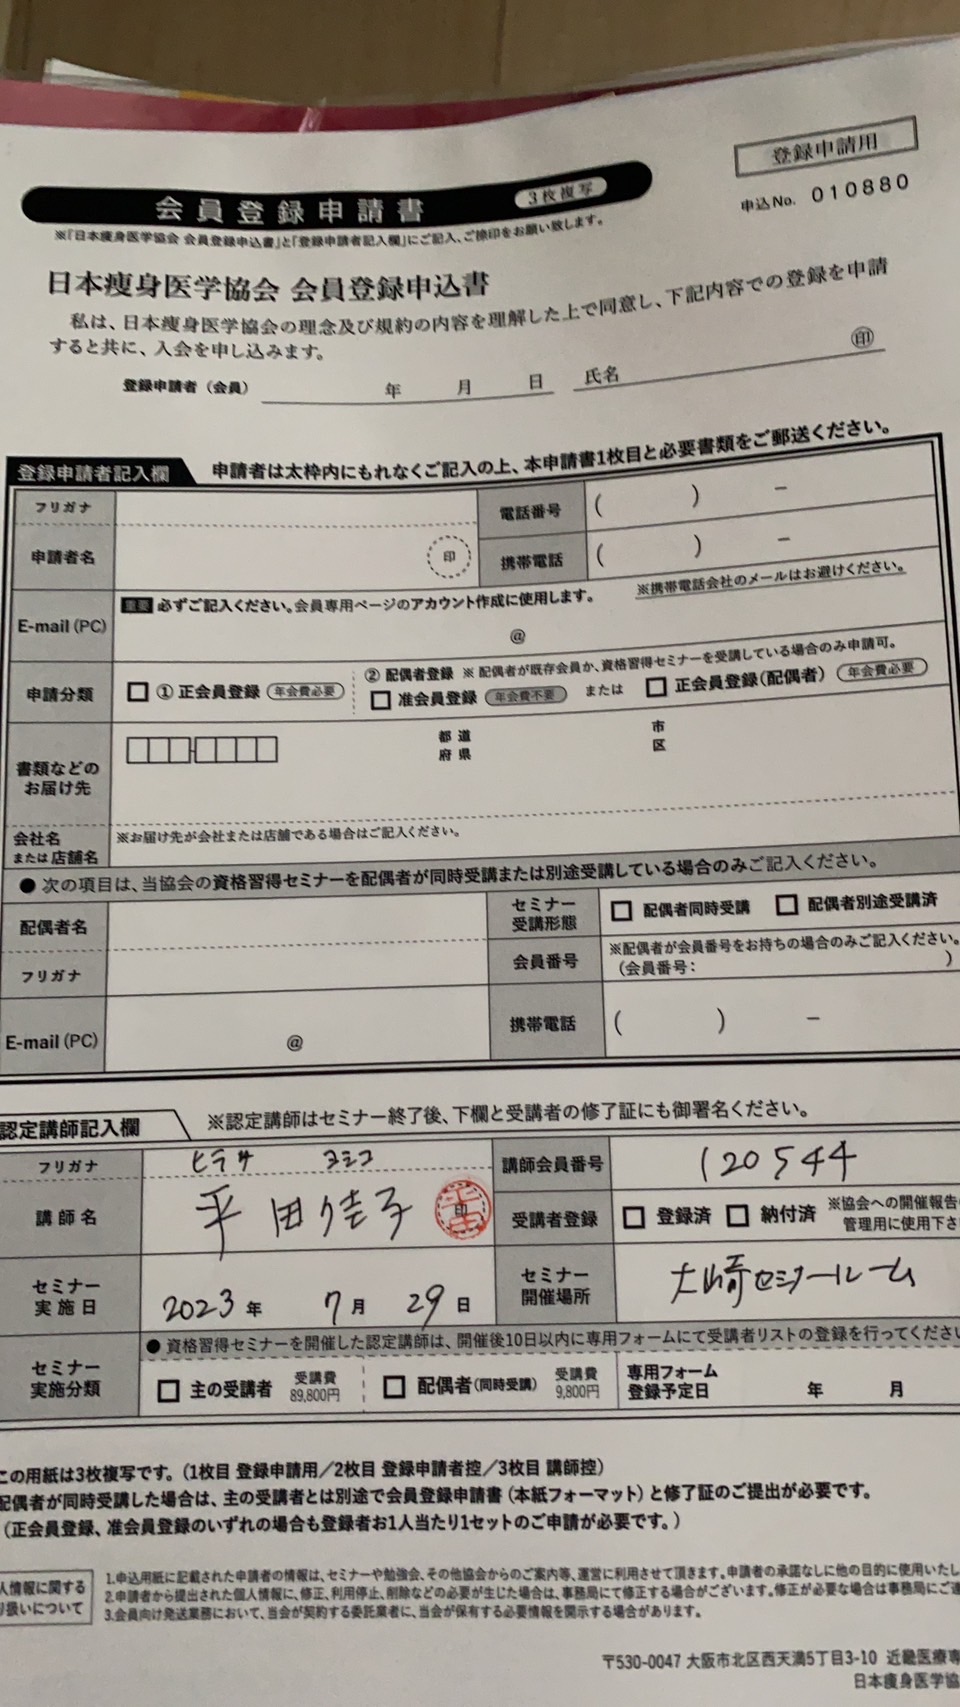 登録申請用
申込No. 010880
会員登録申請書 3枚複写
※「日本痩身医学協会 会員登録申込書」と「登録申請者記入欄」にご記入、ご捺印をお願い致します。
日本痩身医学協会 会員登録申込書
私は、日本痩身医学協会の理念及び規約の内容を理解した上で同意し、下記内容での登録を申請
すると共に、入会を申し込みます。
登録申請者（会員） 年 月 日 氏名 ㊞
登録申請者記入欄 申請者は太枠内にもれなくご記入の上、本申請書1枚目と必要書類をご郵送ください。
フリガナ
申請者名 印
電話番号 ( ) −
携帯電話 ( ) −
E-mail (PC) 重要 必ずご記入ください。会員専用ページのアカウント作成に使用します。 ※携帯電話会社のメールはお避けください。
@
申請分類 □ ①正会員登録 年会費必要
② 配偶者登録 ※ 配偶者が既存会員か、資格習得セミナーを受講している場合のみ申請可。
□ 准会員登録 年会費不要 または □ 正会員登録（配偶者） 年会費必要
書類などの
お届け先
都 道
府 県
市
区
会社名
または 店舗名
※お届け先が会社または店舗である場合はご記入ください。
● 次の項目は、当協会の資格習得セミナーを配偶者が同時受講または別途受講している場合のみご記入ください。
配偶者名
セミナー
受講形態
□ 配偶者同時受講 □ 配偶者別途受講済
フリガナ
会員番号
※配偶者が会員番号をお持ちの場合のみご記入ください。
（会員番号： ）
E-mail (PC) @
携帯電話 ( ) −
認定講師記入欄 ※認定講師はセミナー終了後、下欄と受講者の修了証にも御署名ください。
フリガナ ヒラタ ヨシコ
講師会員番号 120544
講師名 平田佳子 印
受講者登録 □ 登録済 □ 納付済 ※協会への開催報告
管理用に使用下さ
セミナー
実施日
2023 年 7 月 29 日
セミナー
開催場所
大崎セミナールーム
● 資格習得セミナーを開催した認定講師は、開催後10日以内に専用フォームにて受講者リストの登録を行ってくださ
セミナー
実施分類
□ 主の受講者 受講費
89,800円
□ 配偶者（同時受講） 受講費
9,800円
専用フォーム
登録予定日 年 月
この用紙は3枚複写です。（1枚目 登録申請用／2枚目 登録申請者控／3枚目 講師控）
配偶者が同時受講した場合は、主の受講者とは別途で会員登録申請書（本紙フォーマット）と修了証のご提出が必要です。
（正会員登録、准会員登録のいずれの場合も登録者お1人当たり1セットのご申請が必要です。）
人情報に関する
り扱いについて
1.申込用紙に記載された申請者の情報は、セミナーや勉強会、その他協会からのご案内等、運営に利用させて頂きます。申請者の承諾なしに他の目的に使用いたし
2.申請者から提出された個人情報に、修正、利用停止、削除などの必要が生じた場合は、事務局にて修正する場合がございます。修正が必要な場合は事務局にご連
3.会員向け発送業務において、当会が契約する委託業者に、当会が保有する必要情報を開示する場合があります。
〒530-0047 大阪市北区西天満5丁目3-10 近畿医療専
日本痩身医学協